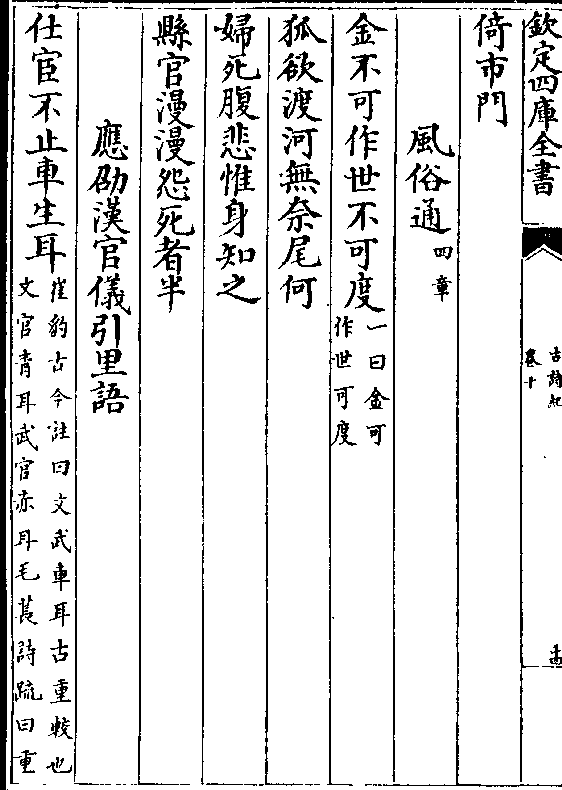 欽定四庫全書
古詩紀
卷十
倚市門
風俗通四章
金不可作世不可度一曰金可
作世可度
狐欲渡河無奈尾何
婦死腹悲惟身知之
縣官漫漫怨死者半
應劭漢官儀引里語
仕宦不止車生耳崔豹古今註曰文武車耳古重較也
文官青耳武官赤耳毛萇詩疏曰重